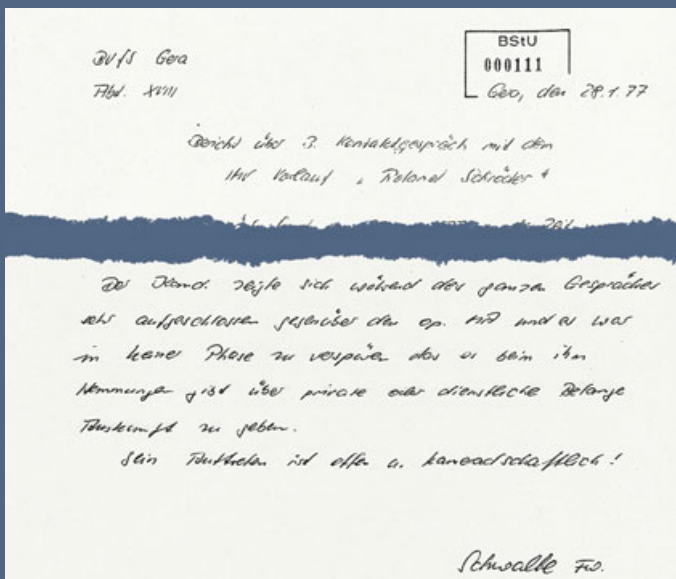 BVfS Gera
Abt. XVIII
BStU
000111
Gera, den 28.1.77
Bericht über 3. Kontaktgespräch mit dem
IM Vorlauf „Roland Schröder“
Zeit
Der Kand. zeigte sich während des ganzen Gespräches
sehr aufgeschlossen gegenüber den op. MA und es war
in keiner Phase zu verspüren das es beim ihm
Hemmungen gibt über private oder dienstliche Belange
Auskunft zu geben.
Sein Auftreten ist offen u. kameradschaftlich!
Schwalbe Fw.